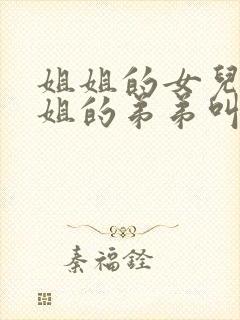 姐姐的女兒
姐的弟弟叫
秦福銓